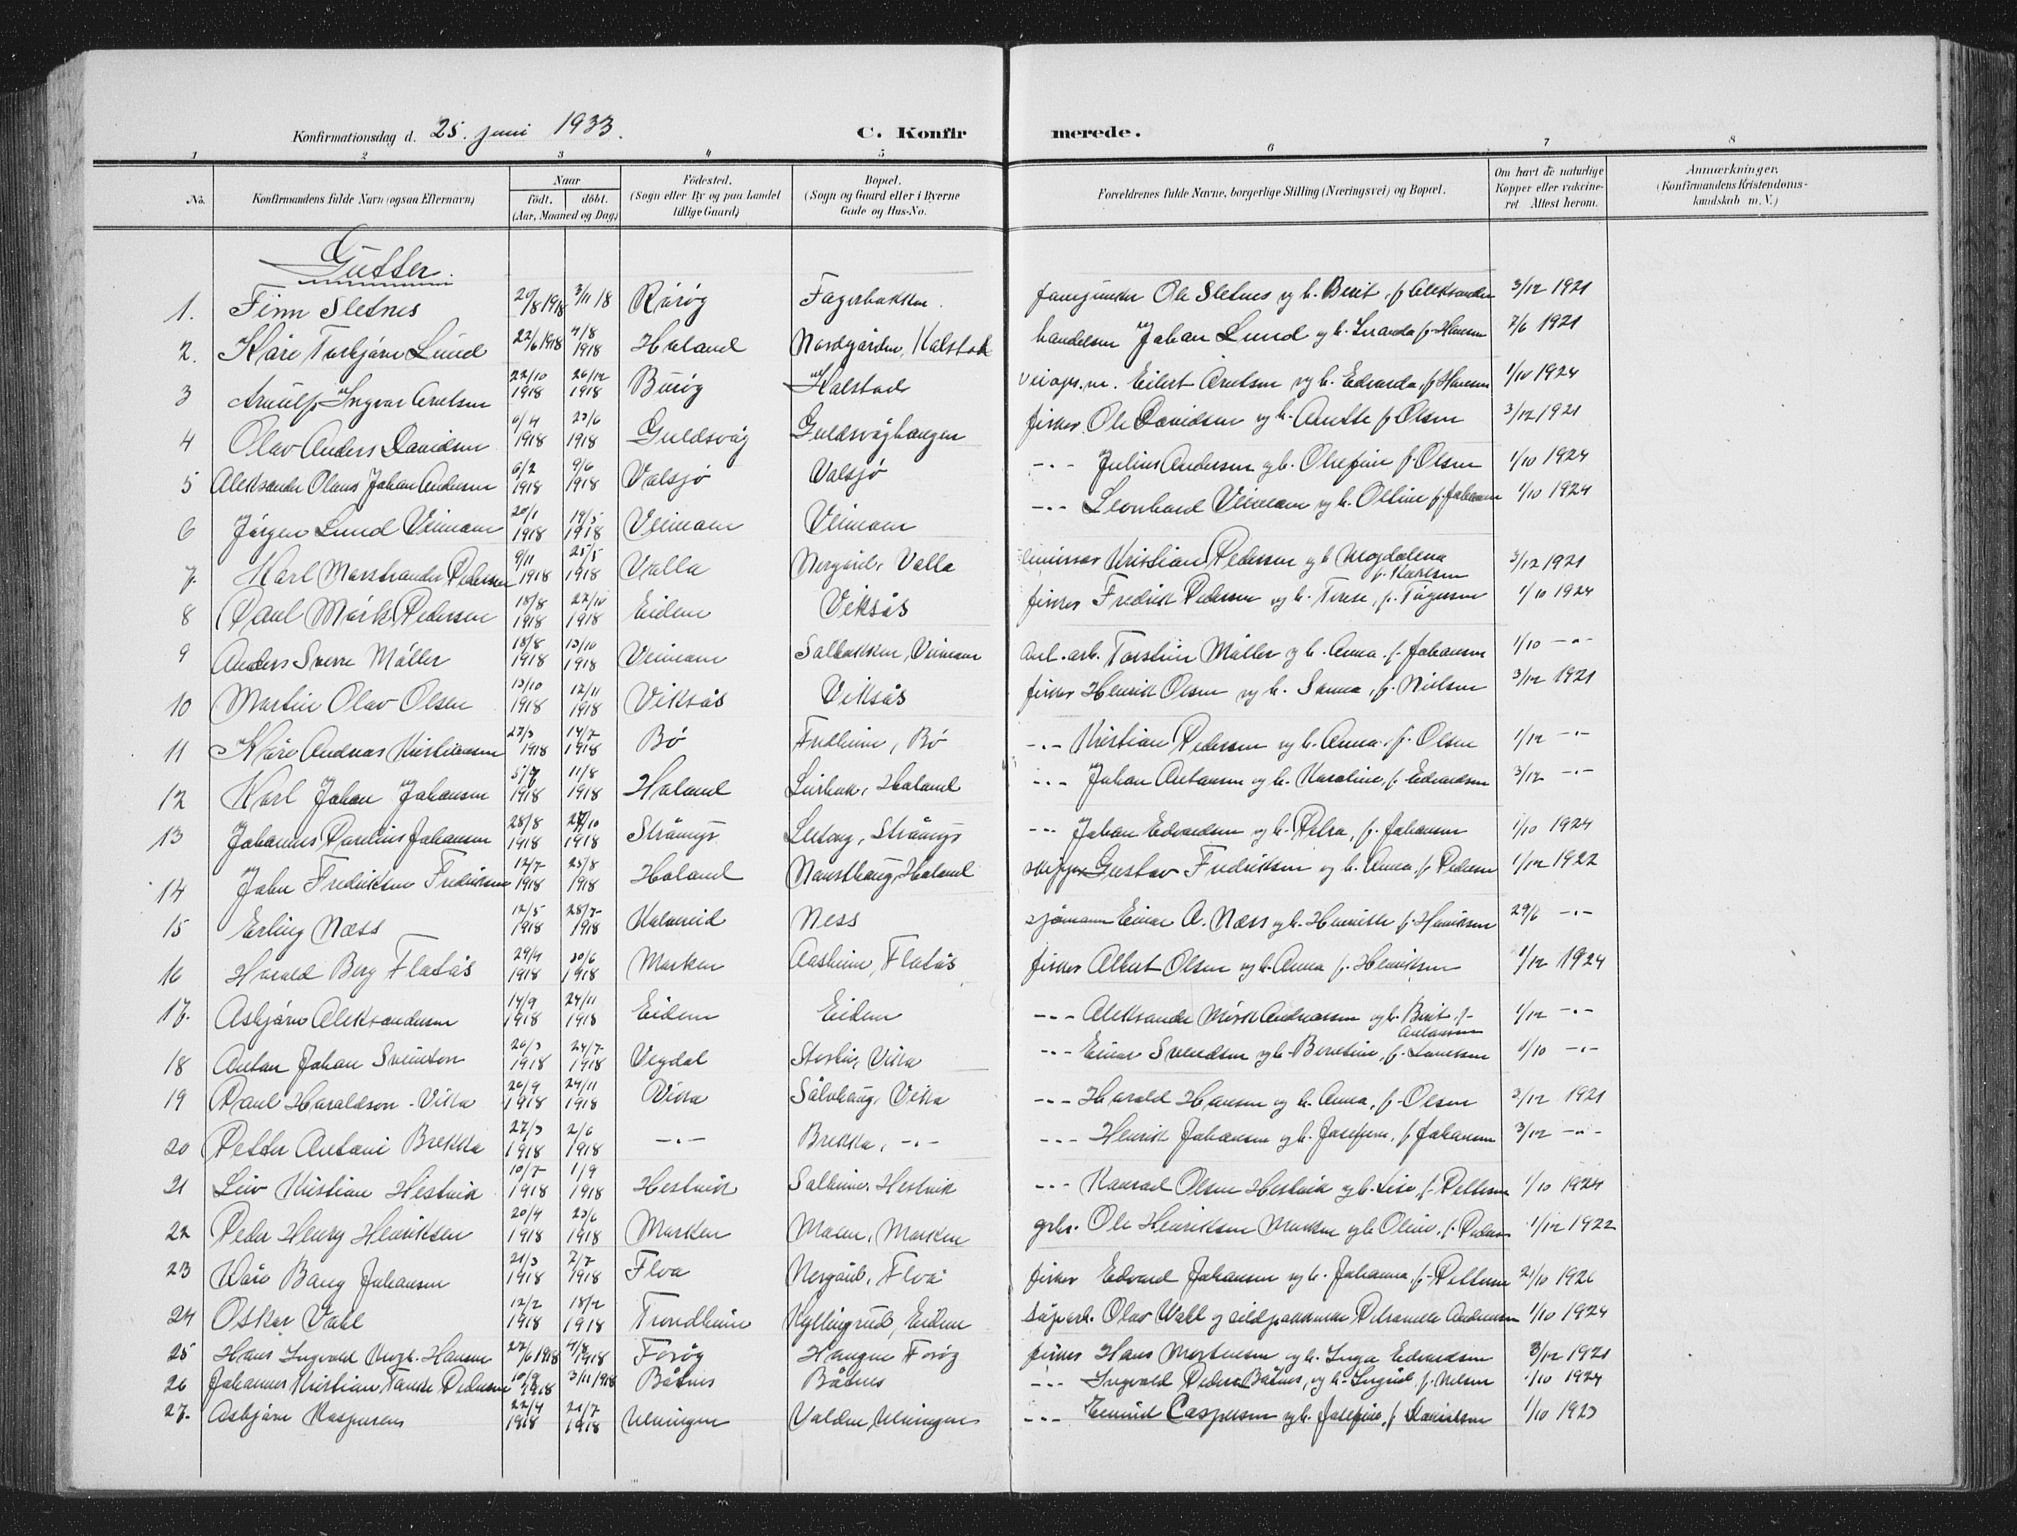 Konfirmationsdag d. 25. juni 1933.
C. Konfirmerede.
1 2 3 4 5 6 7 8
No.
Konfirmandens fulde Navn (ogsaa Efternavn)
Naar
födt. döbt.
(Aar, Maaned og Dag)
Födested.
(Sogn eller By og paa Landet
tillige Gaard)
Bopæl.
(Sogn og Gaard eller i Byerne
Gade og Hus-No.
Forældrenes fulde Navne, borgerlige Stilling (Næringsvei) og Bopæl.
Om havt de naturlige
Kopper eller vakcine-
ret. Attest herom.
Anmærkninger.
(Konfirmandens Kristendoms-
kundskab m. V.)
Gutter.
1. Finn Sletnes 20/8 1918 3/11 18 Rörög Fagerbakken. Ole Sletnes og h. Berit, f. Aleksander 3/12 1921
2. Kåre Torbjørn Lund 22/6 1918 4/8 1918 Haland Nordgården, Kalstad Johan Lund og h. f. Hansen 7/6 1921
3 Arnulf Ingvar Arntsen 22/10 1918 26/12 1918 Burög Kalstad Eilert Arntsen og h. Edvarda, f. Hansen 1/10 1924
4 Olav Anders Davidsen 6/4 1918 23/6 1918 Guldsvåg Guldsvåghaugen fisker Ole Davidsen og h. Anette f. Olsen 3/12 1921
5 Aleksander Olaus Johan Andersen 6/2 1918 9/6 1918 Valsjö Valsjö -"- Julius Andersen og h. Olufine f. Olsen 1/10 1924
6 Jörgen Lund Veimoen 20/1 1918 19/5 1918 Veimoen Veimoen -"- Leonhard Veimoen og h. Oline f. Johansen 1/10 1924
7. Karl Marstrander Pedersen 9/11 1918 25/5 1918 Valla Nergård, Valla Kristian Pedersen og h. Magdalena f. Karlsen 3/12 1921
8 Paul Mörk Pedersen 18/8 1918 27/10 1918 Eidem Viksås fisker Fredrik Pedersen og h. Terese, f. 1/10 1924
9 Anders Sverre Möller 18/8 1918 13/10 1918 Veimoen Solbakken, Veimoen anl. arb. Torstein Möller og h. Anna f. Johansen 1/10 -"-
10 Martin Olav Olsen 13/10 1918 12/11 1918 Viksås Viksås fisker Henrik Olsen og h. Sanna, f. Nielsen 3/12 1921
11 Kåre Andreas Kristiansen 23/3 1918 14/7 1918 Bö Fredheim, Bö -"- Kristian Pedersen og h. Anna f. Olsen 1/12 -"-
12 Karl Johan Johansen 5/7 1918 11/8 1918 Haland Leirbak, Haland -"- Johan Antonsen og h. Karoline, f. Edvardsen 3/12 -"-
13 Johannes Paulius Johansen 28/8 1918 27/10 1918 -"- Johan Edvardsen og h. Petra, f. Johansen 1/10 1924
14 John Fredriksen Fredriksen 12/7 1918 25/8 1918 Haland Nausthaug, Haland skipper Gustav Fredriksen og h. Anna, f. Pedersen 1/12 1922
15 Erling Næss 12/5 1918 28/7 1918 Kalvneid Ness sjömann Einar A. Næss og h. Henrikke f. Henriksen 29/6 -"-
16 Harald Berg Flatås 29/4 1918 30/6 1918 Marken Aasheim, Flatås fisker Albert Olsen og h. Anna f. Henriksen 1/12 1924
17. Asbjørn Aleksandersen 14/9 1918 24/11 1918 Eidem Eidem -"- Aleksander Mörk Andreassen og h. Berit f. Antonsen 1/12 -"-
18 Anton Johan Svendson 26/3 1918 24/7 1918 Vegdal Vikra -"- Einar Svendsen og h. Beretine, f. 1/10 -"-
19 Paul Haraldson-Vikra 26/9 1918 24/11 1918 Vikra Sålvhaug, Vikra -"- Harald Hansen og h. Anna, f. Olsen 3/12 1921
20 Petter Antoni Brekka 27/3 1918 2/6 1918 -"- Brekka, -"- -"- Henrik Johansen og h. Josefine, f. Johansen 3/12 -"-
21 Leiv Kristian Hestvik 10/7 1918 1/9 1918 Hestvik Solheim, Hestvik -"- Konrad Olsen Hestvik og h. Lise, f. Pettersen 1/10 1924
22 Peder Henry Henriksen 20/4 1918 23/6 1918 Marken Moen, Marken grbr. Ole Henriksen Marken og h. Oline, f. Peders 1/12 1922
23 Kåre Bang Johansen 21/3 1918 7/7 1918 Floa Nergård, Floa fisker Edvard Johansen og h. Johanna, f. Pettersen 21/10 1926
24 Oskar Vall 12/2 1918 18/2 1918 Trondheim Kyllingrud, Eidem Olav Wall og Petranelle Andersen 1/10 1924
25 Hans Ingvald Hansen 22/6 1918 4/8 1918 Forög Haugen Forög fisker Hans Mortensen og h. Inga Edvardsen 3/12 1921
26 Johannes Kristian Tanke Pedersen 10/9 1918 3/11 1918 Båtnes Båtnes -"- Ingvald Peders. Båtnes, og h. Ingrid, f. Nilsen 1/10 1924
27. Asbjørn Kaspersen 22/4 1918 21/7 1918 Ulvingen Valden, Ulvingen -"- Edmund Caspersen og h. Josefine, f. Danielsen 1/10 1923